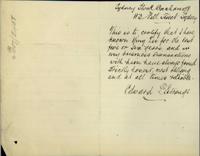 Sydney Stock Exchange
112 Pitt Street Sydney
This is to certify that I have
known for the last
five or six years and in
my business transactions
with him have always found
strictly honest, most obliging
and at all times reliable.
Edward